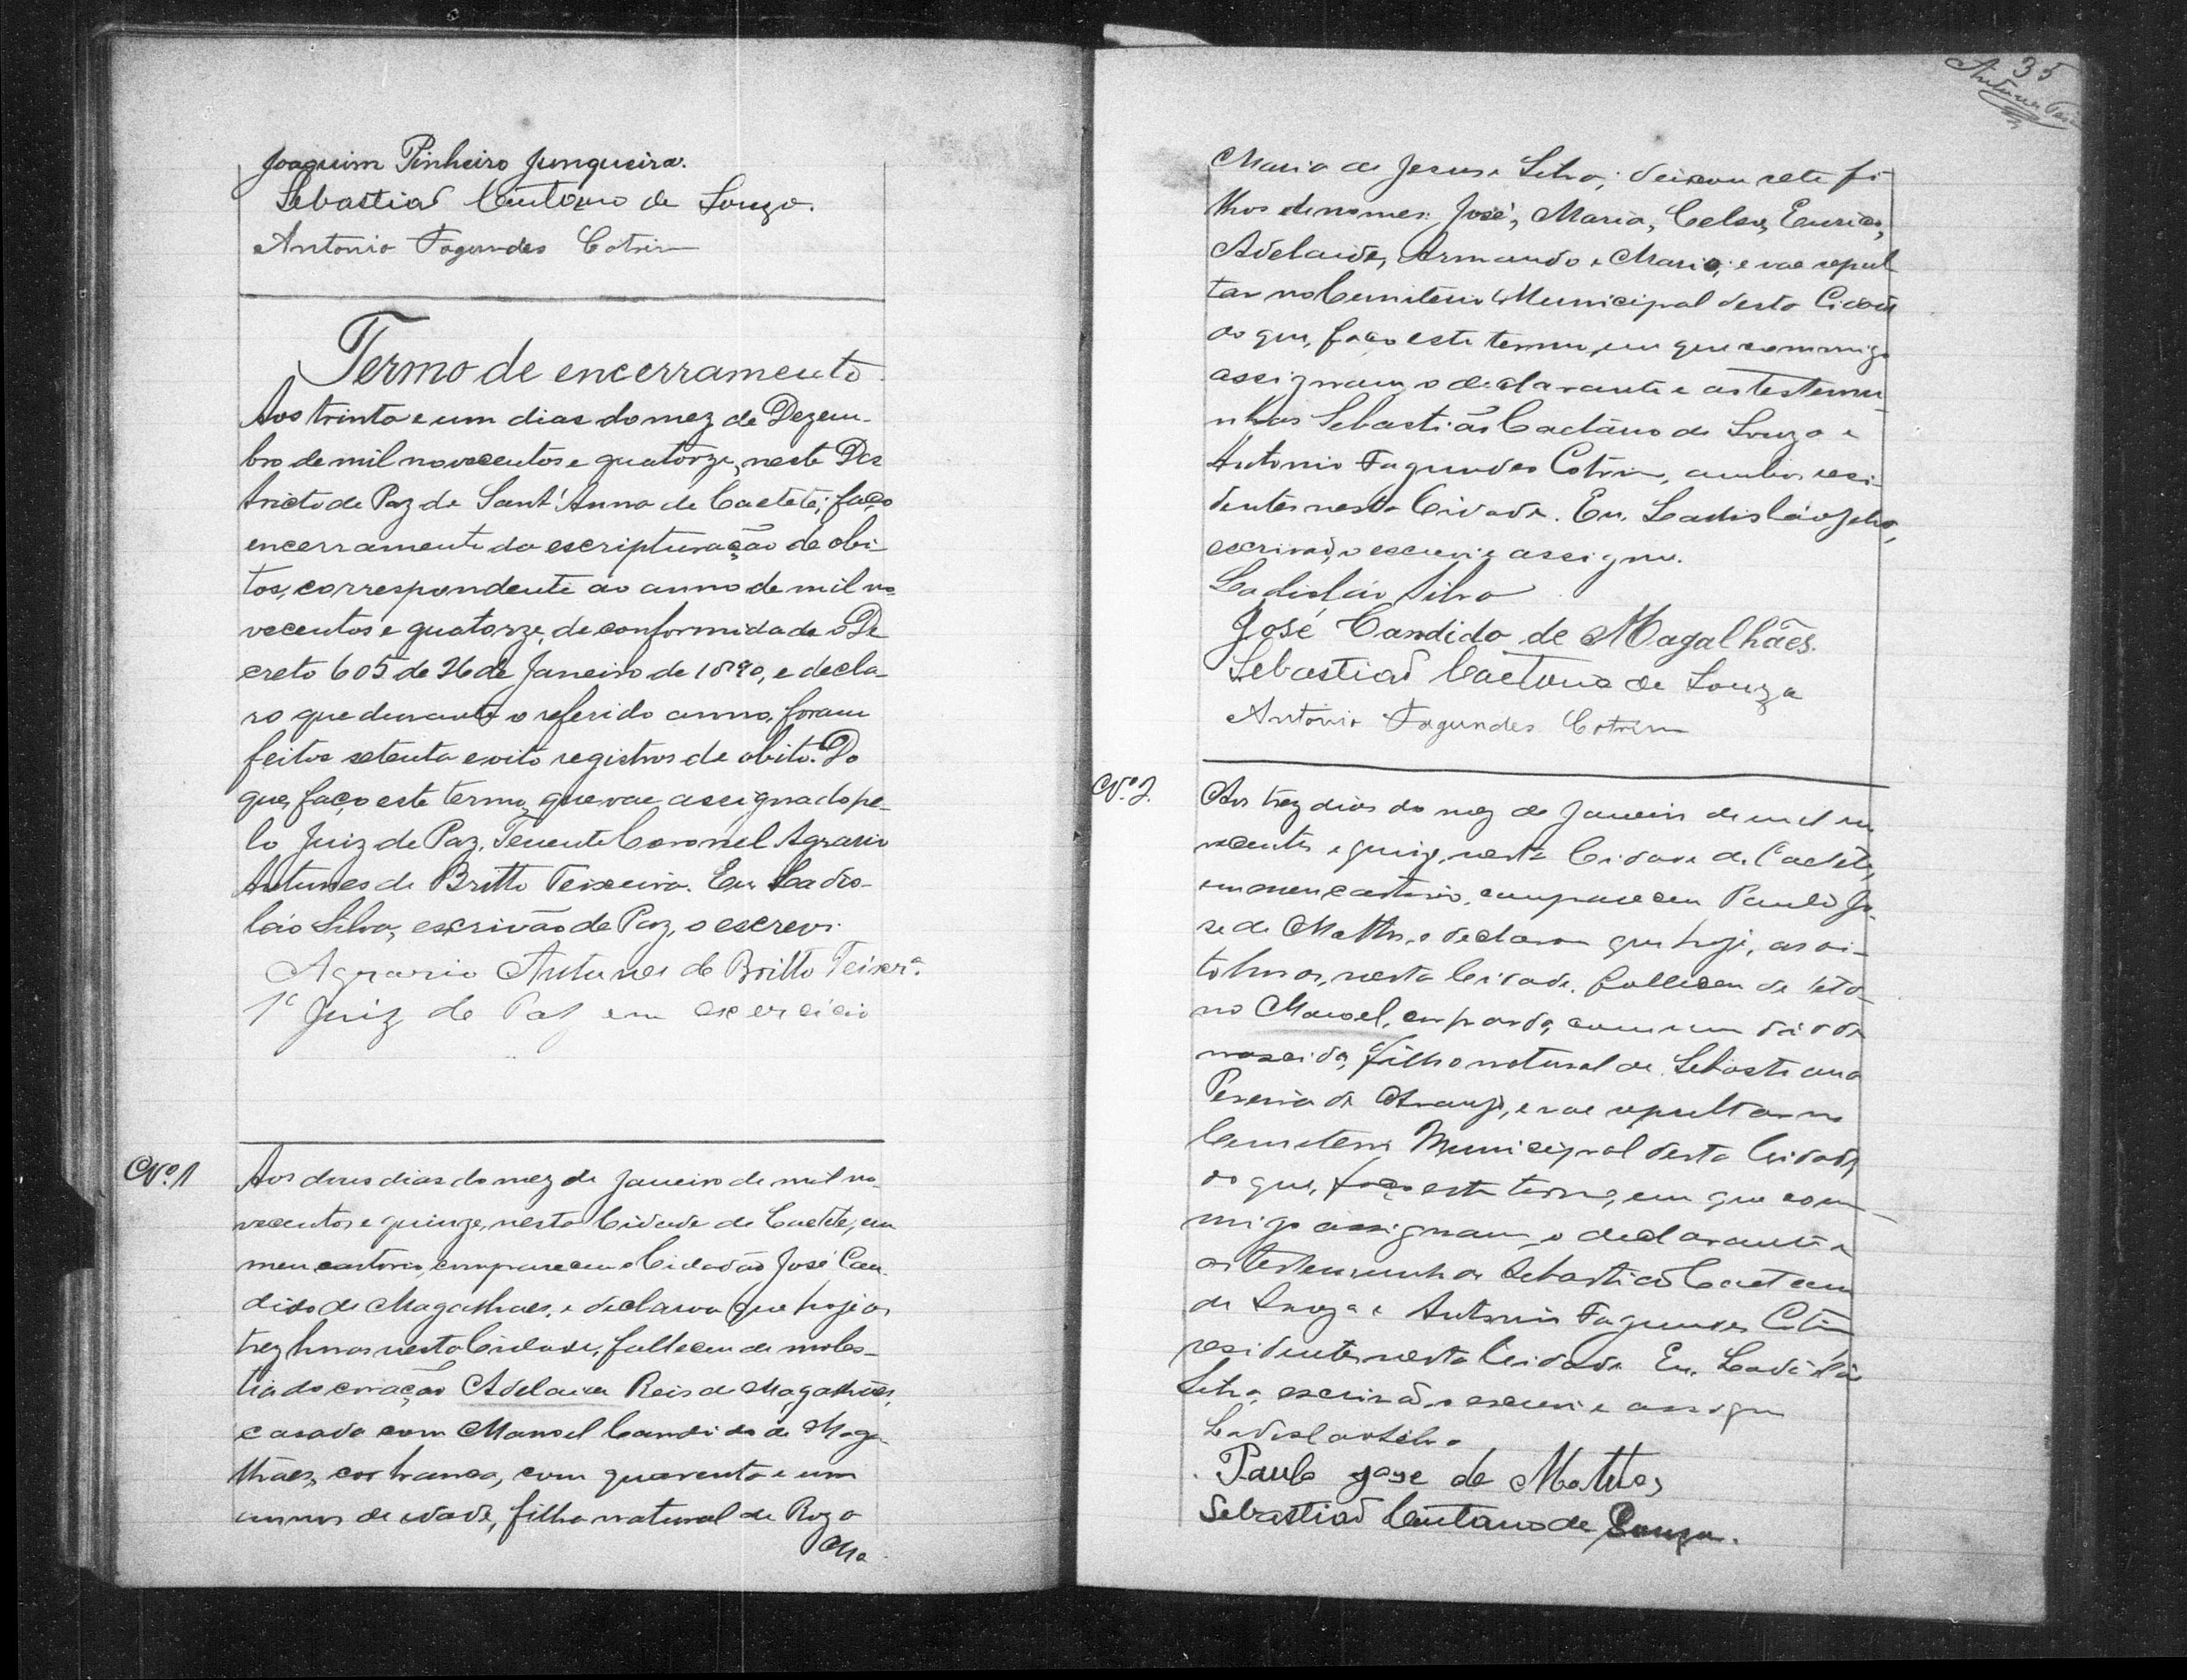 Joaquim Pinheiro Junqueira.
Sebastiaõ Caetano de Souza.
Antonio Fagundes Cotrim
Termo de encerramento.
Aos trinta e um dias do mez de Dezem-
bro de mil novecentos e quatorze, neste Dis
tricto de Paz de Sant'Anna de Caeteté, faço
encerramento da escripturação de obi-
tos, correspondente ao anno de mil no
vecentos e quatorze, de conformidade o De
creto 605 de 26 de Janeiro de 1890, e decla-
ro que durante o referido anno, foram
feitos setenta e oito registros de obito. Do
que, faço este termo, que vae assignado pe-
lo Juiz de Paz, Tenente Coronel Agrario
Antunes de Britto Teixeira. Eu Ladis-
láo Silva, escrivão de Paz, o escrevi.
Agrario Antunes de Britto Teixrª.
1º Juiz de Paz em exercicio
Nº. 1
Aos dous dias do mez de Janeiro de mil no-
vecentos e quinze, nesta Cidade de Caeteté, em
meu cartorio, compareceu o Cidadão José Can-
dido de Magalhães, e declarou que hoje as
trez horas nesta Cidade, falleceu de moles-
tia do coração Adelaide Reis de Magalhães,
casada com Manoel Candido de Maga-
lhães, cor branca, com quarenta e um
annos de idade, filha natural de Roza
Ma
35
Maria de Jesus e Silva; deixou sete fi-
lhos de nomes: José, Maria, Celso, Eurico,
Adelaide, Armando e Mario; e vae sepul
tar no Cemiterio Municipal desta Cidade
do que, faço este termo, em que commigo
assignam o declarante e as testemu-
nhas Sebastião Caetano de Souza e
Antonio Fagundes Cotrim, ambos resi-
dentes nesta Cidade. Eu, Ladisláo Silva,
escrivão, o escrevi e assigno.
Ladisláo Silva
José Candido de Magalhães.
Sebastiaõ Caetano de Souza
Antonio Fagundes Cotrim
Nº. 2.
Aos trez dias do mez de Janeiro de mil no
vecentos e quinze, nesta Cidade de Caeteté,
em meu cartorio, compareceu Paulo Jo-
sé de Mattos, e declarou que hoje, as oi-
to horas, nesta Cidade, falleceu de teta-
no Manoel, cor parda, com um dia de
nascido, filho natural de Sebastiana
Pereira de Araujo, e vae sepultar no
Cemiterio Municipal desta Cidade,
do que, faço este termo, em que com-
migo assignam, o declarante e
as testemunhas Sebastião Caetano
de Souza e Antonio Fagundes Cotrim
residentes nesta Cidade. Eu, Ladisláo
Silva, escrivão, o escrevi e assigno
Ladislao Silva
Paulo Jose de Mattos
Sebastiaõ Caetano de Souza.